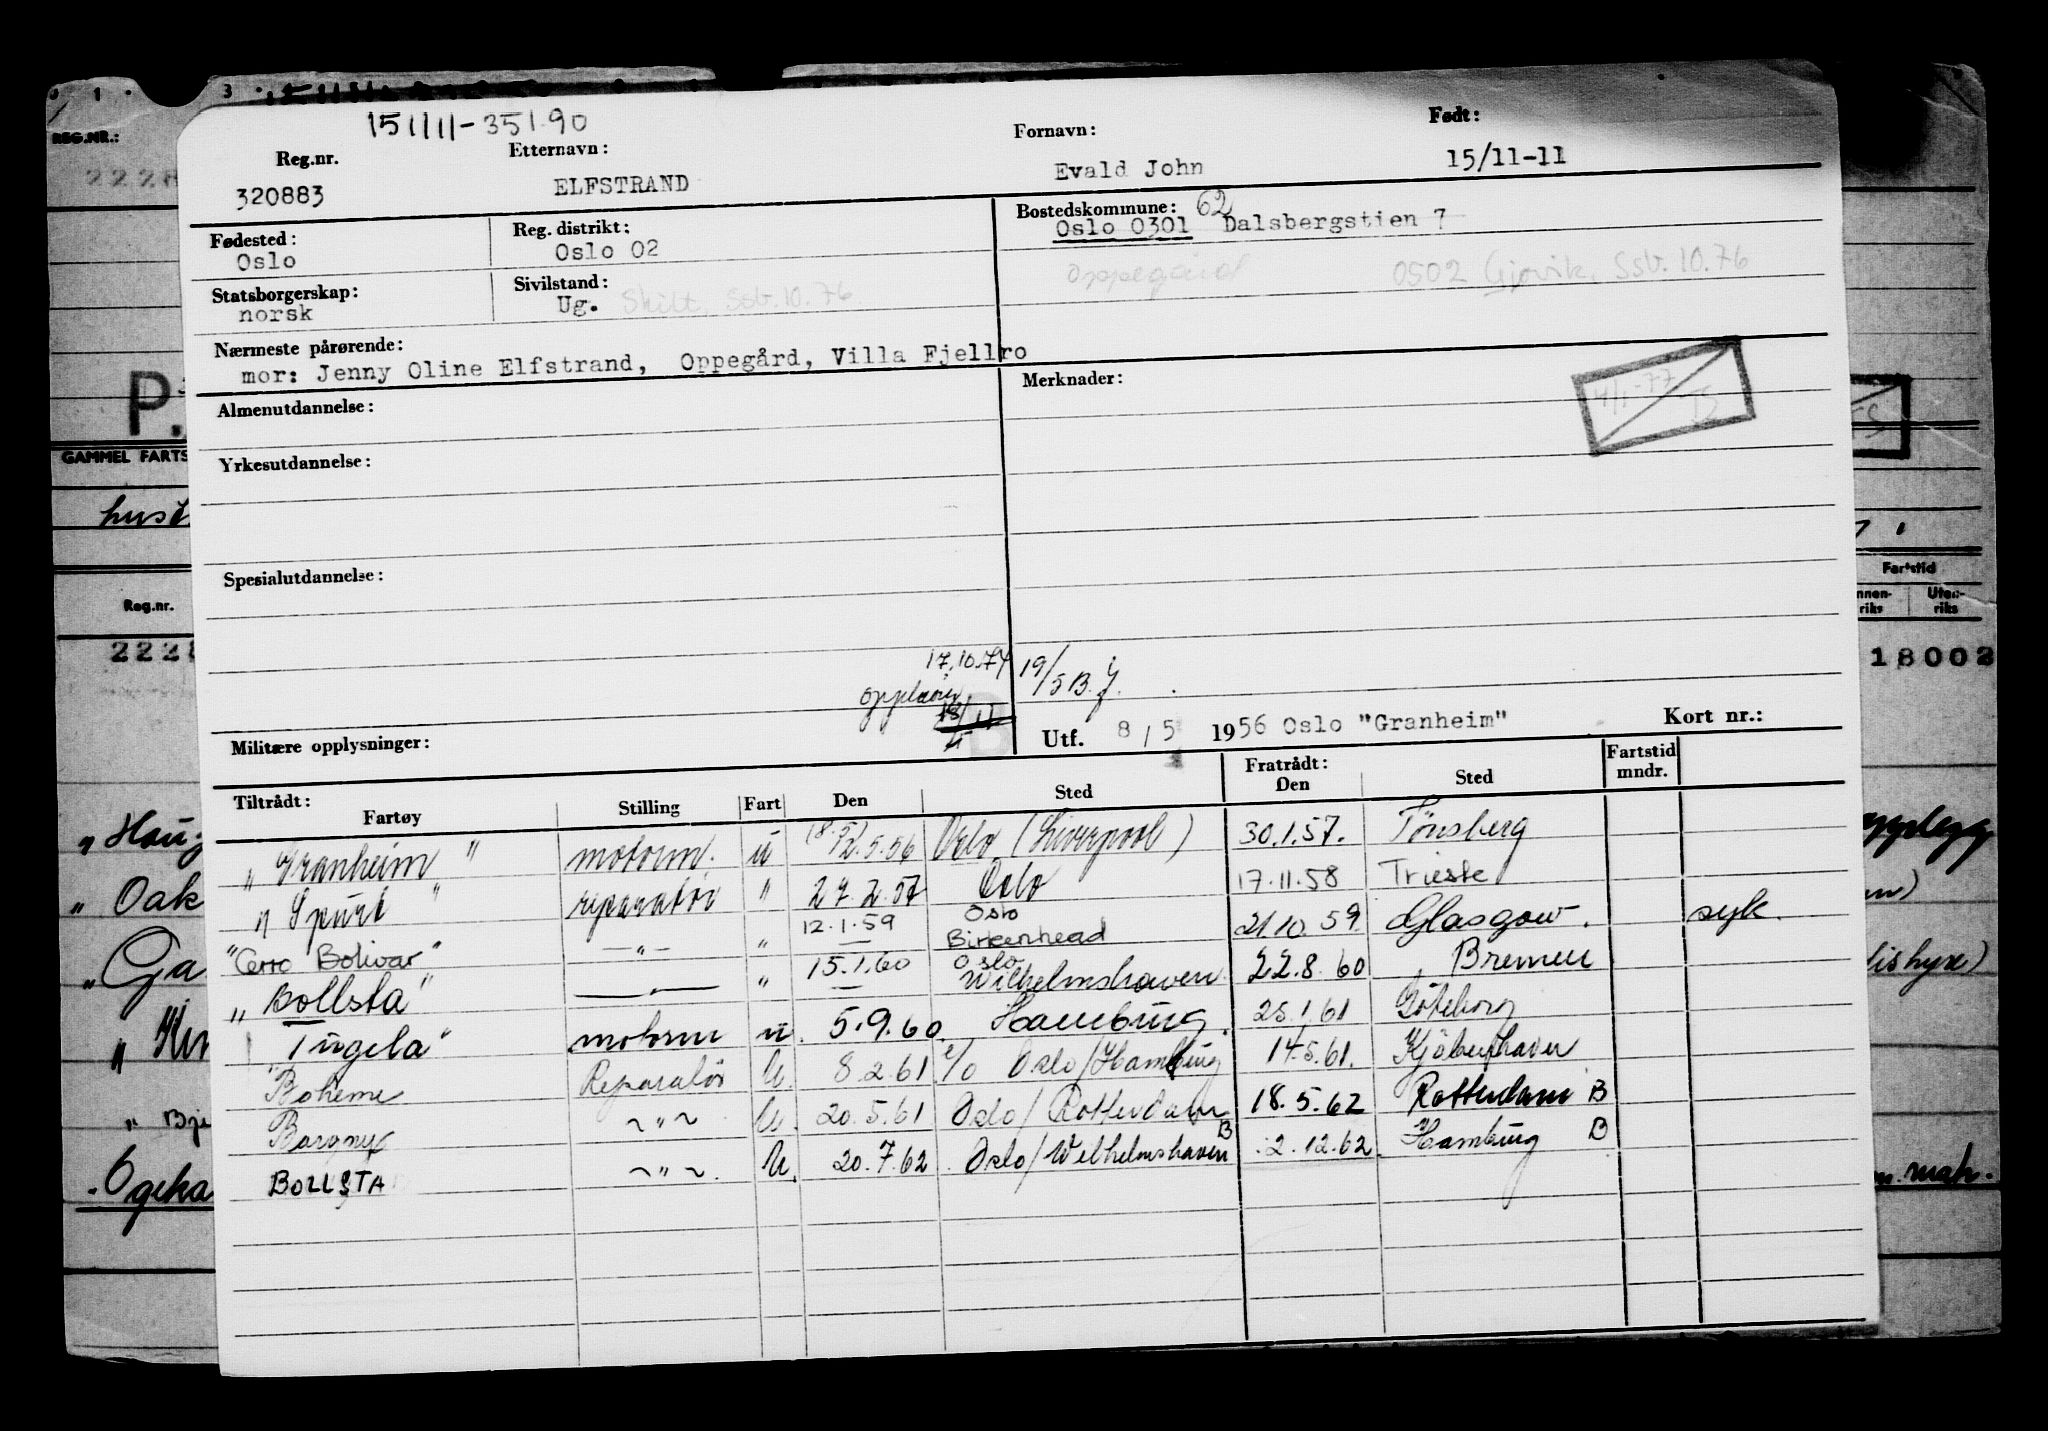 1 3
REG.NR.:
151111-351.90
Reg.nr. Etternavn: Fornavn: Født:
320883 ELFSTRAND Evald John 15/11-11
Fødested: Reg. distrikt: Bostedskommune: 62
Oslo Oslo 02 Oslo 0301 Dalsbergstien 7
Oppegård 0502 Gjøvik, Ssb. 10.76
Statsborgerskap: Sivilstand:
norsk Ug. Skilt, Ssb. 10.76
Nærmeste pårørende:
mor: Jenny Oline Elfstrand, Oppegård, Villa Fjellro
Almenutdannelse: Merknader:
4/1-77 TS
Yrkesutdannelse:
GAMMEL FARTS
Spesialutdannelse:
Fartstid
Reg.nr.
Uten-
riks riks
18002
17.10.74 19/5 B.J.
Militære opplysninger: B Utf. 8/5 1956 Oslo "Granheim" Kort nr.:
Tiltrådt: Fratrådt: Fartstid
Fartøy Stilling Fart Den Sted Den Sted mndr.
"Granheim" motorm. u (8.5) 12.5.56 Oslo (Liverpool) 30.1.57. Tønsberg
"Spurt" reparatör " 27.2.57 Oslo 17.11.58 Trieste
"Cerro Bolivar" —"— " 12.1.59 — Oslo Birkenhead 21.10.59 Glasgow. syk.
"Bollsta" —"— " 15.1.60 — Oslo Wilhelmshaven 22.8.60 Bremen
"Ingela" motorm u. 5.9.60 Hamburg. 25.1.61 Göteborg
Boheme Reparatör U. 8.2.61 Oslo/Hamburg 14.5.61. Kjøbenhavn
Borgny ~"~ U. 20.5.61 Oslo/Rotterdam 18.5.62 Rotterdam B
BOLLSTA ~"~ U. 20.7.62 Oslo/Wilhelmshaven B 2.12.62. Hamburg B